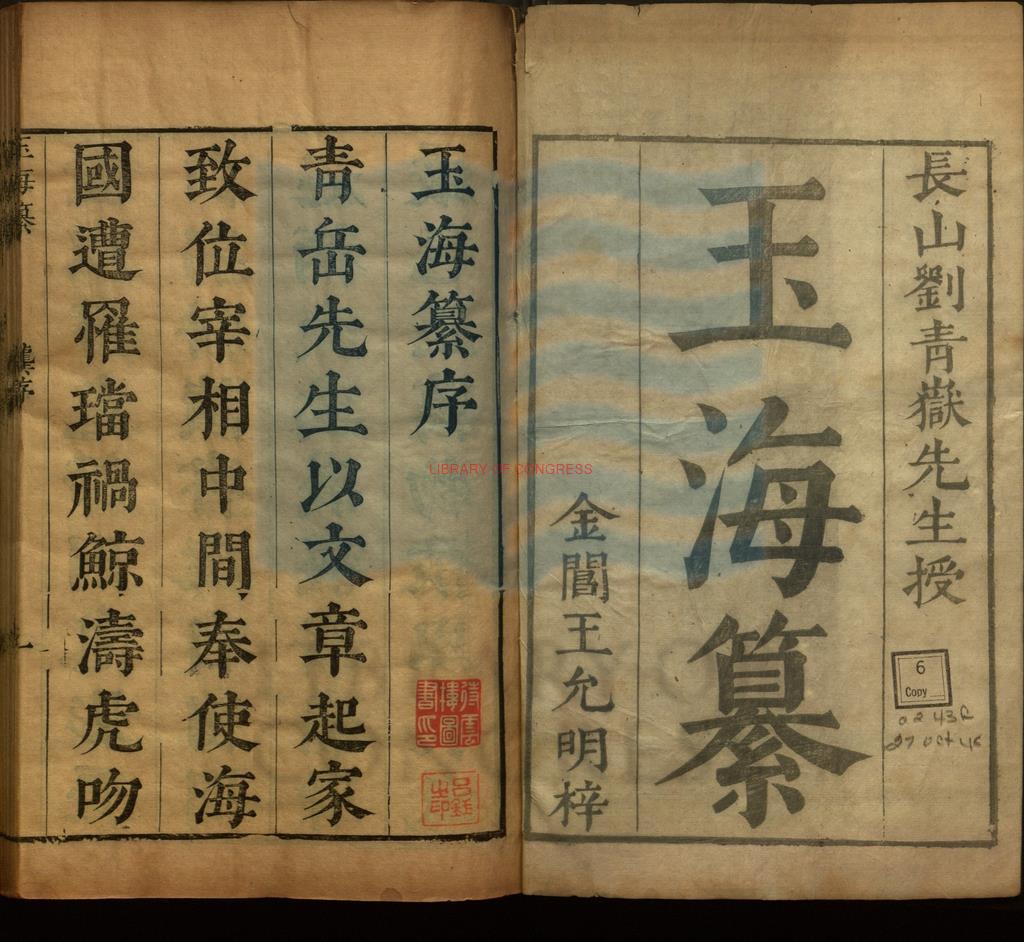 長山劉青嶽先生授
玉海纂
金閶王允明梓
6
Copy
27 Oct 45
玉海纂序
青岳先生以文章起家
致位宰相中間奉使海
國遭罹璫禍鯨濤虎吻
玉海纂
LIBRARY OF CONGRESS